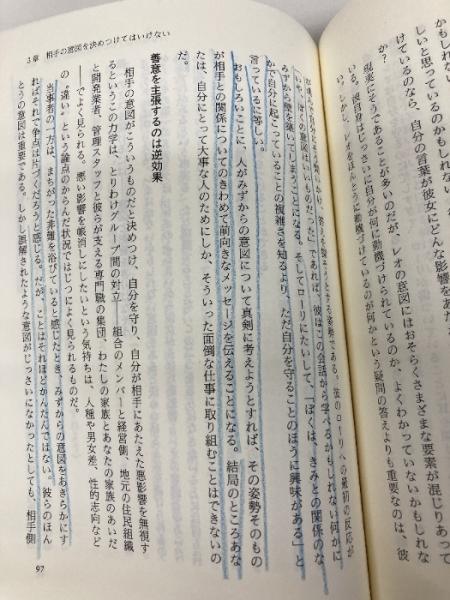 かもしれない
しいと思っているのかもしれな
けているのなら、自分の言葉が彼女にどんな影響をあた
か？
現実にそうであることが多いのだが、レオの意図にはおそらくさまざまな要素が混じりあって
いる。彼自身はじっさいに自分が何に動機づけられているのか、よくわかっていないかもしれな
レオをほんとうに動機づけているのが何かという疑問の答えよりも重要なのは、彼
答えを探そうとする姿勢である。彼のローリへの最初の反応が
いや、ぼくの意図はいいものだった」であれば、彼はこの会話から学べるかもしれない何かに
みずから壁を築いてしまうことになる。そしてローリにたいして、「ぼくは、きみとの関係のな
かで自分に起こっていることの複雑さを知るより、ただ自分を守ることのほうに興味がある」と
言っているに等しい。
おもしろいことに、人がみずからの意図について真剣に考えようとすれば、その姿勢そのもの
が相手との関係についてのきわめて前向きなメッセージを伝えることになる。結局のところあな
たは、自分にとって大事な人のためにしか、そういった面倒な仕事に取り組むことはできないの
善意を主張するのは逆効果
相手の意図がこういうものだと決めつけ、自分を守り、自分が相手にあたえた悪影響を無視す
るというこの力学は、とりわけグループ間の対立――組合のメンバーと経営側、地元の住民組織
と開発業者、管理スタッフと彼らが支える専門職の集団、わたしの家族とあなたの家族のあいだ
――でよく見られる。悪い影響を帳消しにしたいという気持ちは、人種や男女差、性的志向など
の“違い”という論点のからんだ状況ではじつによく見られるものだ。
当事者の一方は、まちがった非難を浴びていると感じたとき、みずからの意図をあきらかにす
ればそれで争点は片づくだろうと感じる。だが、ことはそれほどかんたんではない。彼らのほん
とうの意図は重要である。しかし誤解されたような意図がじっさいになかったとしても、相手側
3章 相手の意図を決めつけてはいけない
97